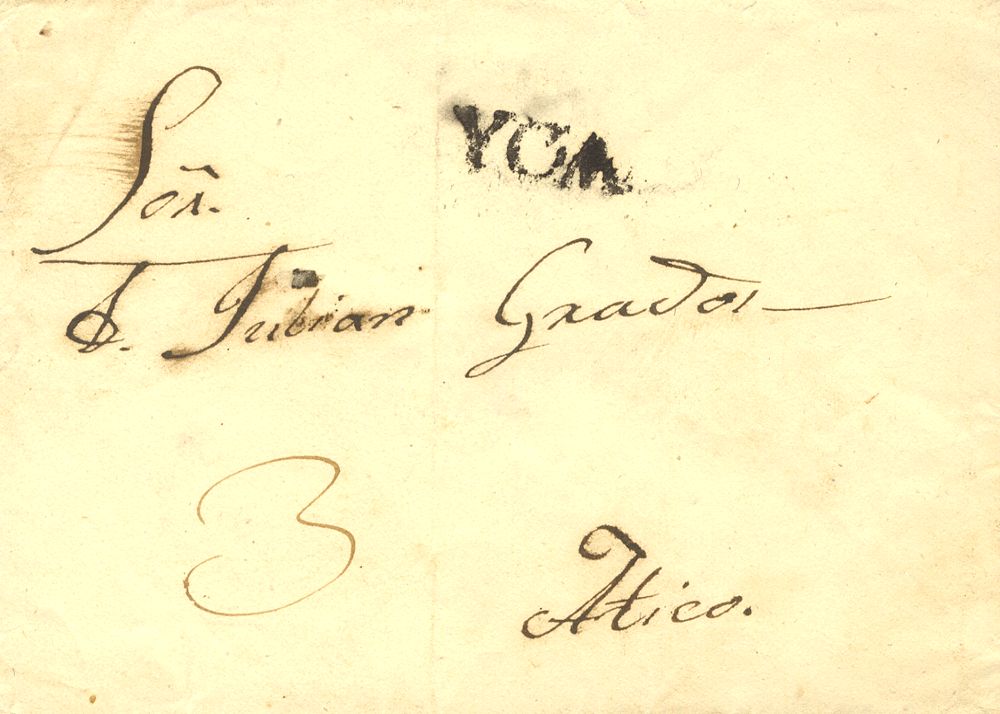 YCA
Sõr.
D. Julian Grados
3
Atico.